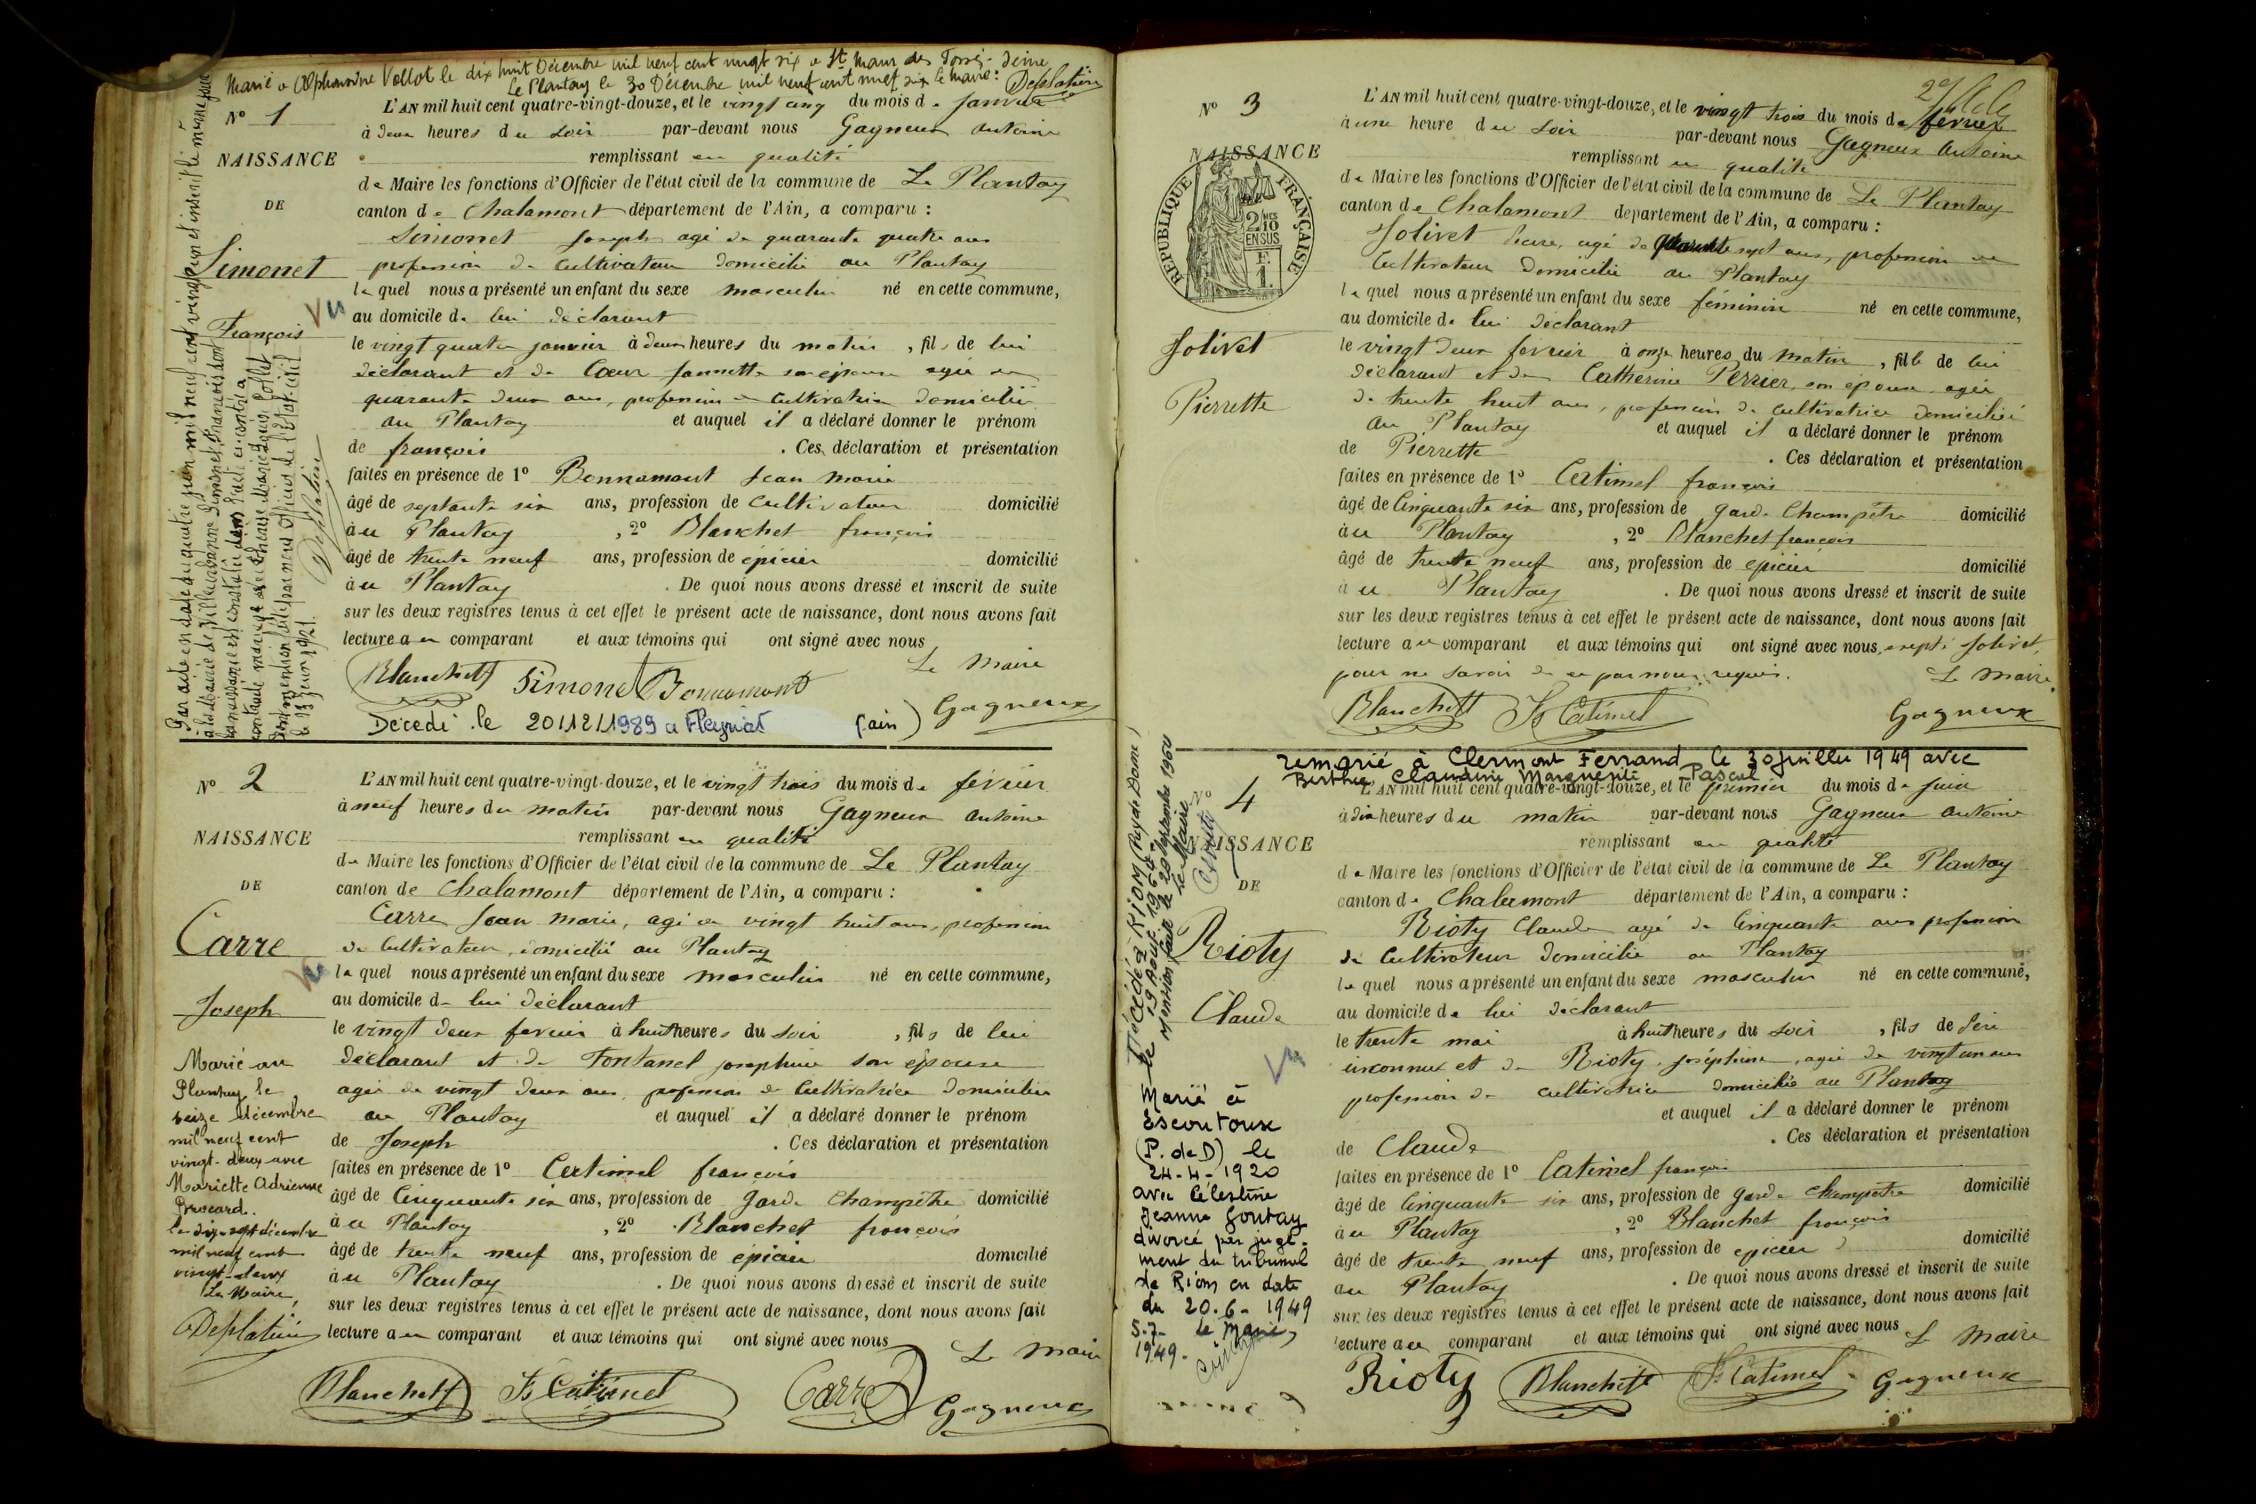 Marié à Alphonsine Vollot le dix huit Décembre mil neuf cent vingt six à St Maur des Fossés - Seine
Le Plantay le 30 Décembre mil neuf cent vingt six le maire: Deplatière
N° 1
NAISSANCE
DE
Simonet
François
Vu
L'AN mil huit cent quatre-vingt-douze, et le vingt cinq du mois de Janvier
à deux heures du soir par-devant nous Gagneux Antoine
remplissant en qualité
de Maire les fonctions d'Officier de l'état civil de la commune de Le Plantay
canton de Chalamont département de l'Ain, a comparu :
Simonet Joseph agé de quarante quatre ans
profession de cultivateur domicilié au Plantay
lequel nous a présenté un enfant du sexe masculin né en cette commune,
au domicile de lui déclarant
le vingt quatre janvier à deux heures du matin, fils de lui
déclarant et de Cœur Jannette son épouse agée de
quarante deux ans, profession de cultivatrice domiciliée
au Plantay et auquel il a déclaré donner le prénom
de françois . Ces déclaration et présentation
faites en présence de 1° Bonnamant Jean Marie
âgé de septante six ans, profession de cultivateur domicilié
au Plantay , 2° Blanchet françois
âgé de trente neuf ans, profession de épicier domicilié
au Plantay . De quoi nous avons dressé et inscrit de suite
sur les deux registres tenus à cet effet le présent acte de naissance, dont nous avons fait
lecture au comparant et aux témoins qui ont signé avec nous
Le Maire
Blanchett Simonet Bonnamant
Gagneux
Décédé le 20/12/1989 à Fleyriat (ain)
N° 2
NAISSANCE
DE
Carre
Joseph
Vu
Marié au
Plantay le
seize décembre
mil neuf cent
vingt-deux avec
Mariette Adrienne
le dix-sept décembre
mil neuf cent
vingt-deux
Le Maire,
Deplatière
L'AN mil huit cent quatre-vingt-douze, et le vingt trois du mois de février
à neuf heures du matin par-devant nous Gagneux Antoine
remplissant en qualité
de Maire les fonctions d'Officier de l'état civil de la commune de Le Plantay
canton de Chalamont département de l'Ain, a comparu :
Carre Jean Marie, agé de vingt huit ans, profession
de cultivateur, domicilié au Plantay
lequel nous a présenté un enfant du sexe masculin né en cette commune,
au domicile de lui déclarant
le vingt deux fevrier à huit heures du soir , fils de lui
déclarant et de Fontanel josephine son épouse
agée de vingt deux ans, profession de cultivatrice domiciliée
au Plantay et auquel il a déclaré donner le prénom
de Joseph . Ces déclaration et présentation
faites en présence de 1° Catimel françois
âgé de Cinquante six ans, profession de garde champêtre domicilié
au Plantay , 2° Blanchet françois
âgé de trente neuf ans, profession de épicier domicilié
au Plantay . De quoi nous avons dressé et inscrit de suite
sur les deux registres tenus à cet effet le présent acte de naissance, dont nous avons fait
lecture au comparant et aux témoins qui ont signé avec nous
Le Maire
Blanchett Fs Catimel Carre Gagneux
N° 3
NAISSANCE
RÉPUBLIQUE FRANÇAISE
2/10 EN SUS
Jolivet
Pierrette
L'AN mil huit cent quatre-vingt-douze, et le vingt trois du mois de fevrier
à une heure du soir par-devant nous Gagneux Antoine
remplissant en qualité
de Maire les fonctions d'Officier de l'état civil de la commune de Le Plantay
canton de Chalamont département de l'Ain, a comparu :
Jolivet agé de quarante sept ans, profession de
cultivateur domicilié au Plantay
lequel nous a présenté un enfant du sexe féminin né en cette commune,
au domicile de lui déclarant
le vingt deux février à onze heures du matin, fille de lui
déclarant et de Catherine Perrier, son épouse agée
de trente huit ans, profession de cultivatrice domiciliée
au Plantay et auquel il a déclaré donner le prénom
de Pierrette . Ces déclaration et présentation
faites en présence de 1° Catimel françois
âgé de Cinquante six ans, profession de garde Champêtre domicilié
au Plantay , 2° Blanchet françois
âgé de trente neuf ans, profession de épicier domicilié
au Plantay . De quoi nous avons dressé et inscrit de suite
sur les deux registres tenus à cet effet le présent acte de naissance, dont nous avons fait
lecture au comparant et aux témoins qui ont signé avec nous, excepté Jolivet,
pour ne savoir de ce par nous requis. Le Maire
Blanchett Fs Catimel Gagneux
remarié à Clermont Ferrand le 30 juillet 1949 avec
Berthe Claudine Marguerite Pascal
N° 4
NAISSANCE
DE
Rioty
Claude
Vu
Décédé à RIOM (Puy de Dome)
le 19 Août 1964
Mention faite le 20 septembre 1964
Le Maire
Marié à
Escoutoux
(P. de D) le
24-4-1920
avec Célestine
Jeanne Gontay
divorcé par juge-
ment du tribunal
de Riom en date
du 20-6-1949
5-7- le Maire
1949.
L'AN mil huit cent quatre-vingt-douze, et le premier du mois de juin
à dix heures du matin par-devant nous Gagneux Antoine
remplissant en qualité
de Maire les fonctions d'Officier de l'état civil de la commune de Le Plantay
canton de Chalamont département de l'Ain, a comparu :
Rioty Claude agé de Cinquante ans profession
de cultivateur domicilié au Plantay
lequel nous a présenté un enfant du sexe masculin né en cette commune,
au domicile de lui déclarant
le trente mai à huit heures du soir , fils de Père
inconnu et de Rioty Joséphine, agée de vingt un ans
profession de cultivatrice domiciliée au Plantay
et auquel il a déclaré donner le prénom
de Claude . Ces déclaration et présentation
faites en présence de 1° Catimel françois
âgé de Cinquante six ans, profession de garde champêtre domicilié
au Plantay , 2° Blanchet françois
âgé de trente neuf ans, profession de épicier domicilié
au Plantay . De quoi nous avons dressé et inscrit de suite
sur les deux registres tenus à cet effet le présent acte de naissance, dont nous avons fait
lecture au comparant et aux témoins qui ont signé avec nous Le Maire
Rioty Blanchett Fs Catimel Gagneux